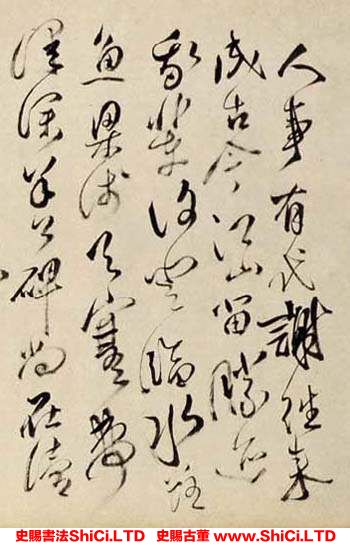 人事有代謝往來
成古今江山留勝迹
我輩復登臨水落
魚梁淺天寒夢
澤深羊公碑尚在讀
史賜書法ShiCi.LTD 史賜古董 www.ShiCi.LTD